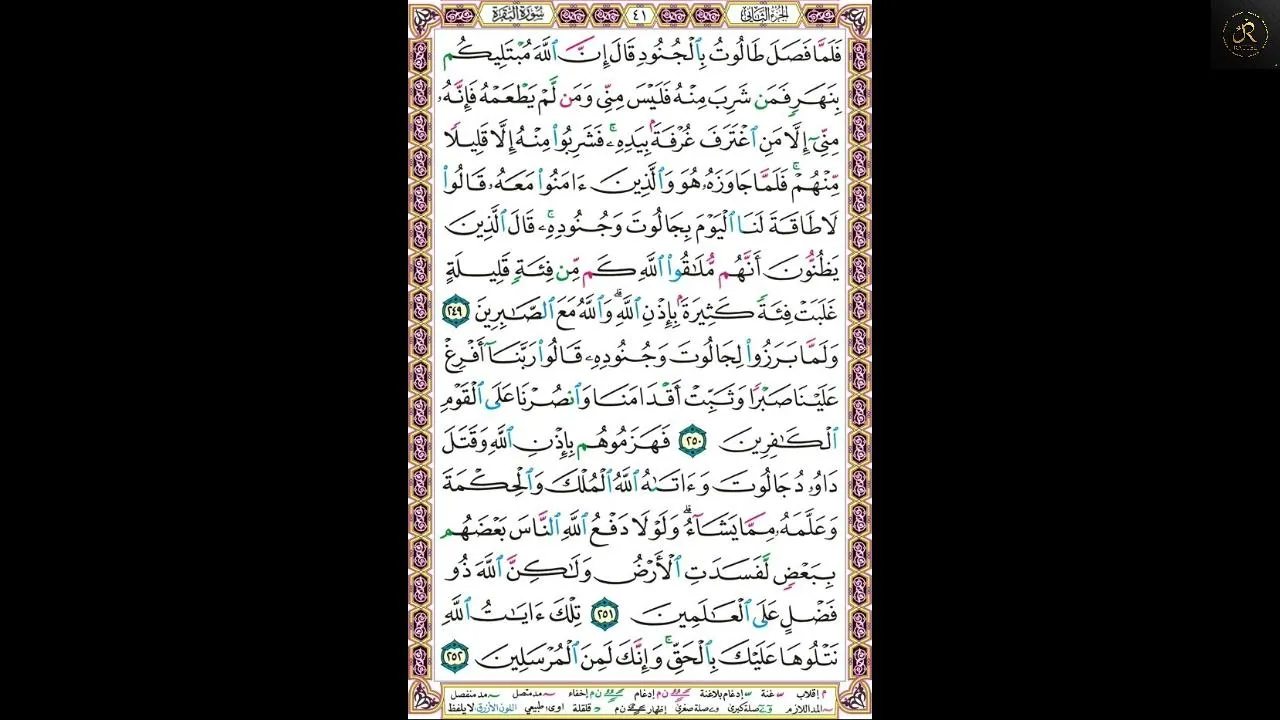 الجزء الثاني ٤١ سورة البقرة
فَلَمَّا فَصَلَ طَالُوتُ بِٱلْجُنُودِ قَالَ إِنَّ ٱللَّهَ مُبْتَلِيكُم
بِنَهَرٍ فَمَن شَرِبَ مِنْهُ فَلَيْسَ مِنِّى وَمَن لَّمْ يَطْعَمْهُ فَإِنَّهُۥ
مِنِّىٓ إِلَّا مَنِ ٱغْتَرَفَ غُرْفَةًۢ بِيَدِهِۦ ۚ فَشَرِبُوا۟ مِنْهُ إِلَّا قَلِيلًا
مِّنْهُمْ ۚ فَلَمَّا جَاوَزَهُۥ هُوَ وَٱلَّذِينَ ءَامَنُوا۟ مَعَهُۥ قَالُوا۟
لَا طَاقَةَ لَنَا ٱلْيَوْمَ بِجَالُوتَ وَجُنُودِهِۦ ۚ قَالَ ٱلَّذِينَ
يَظُنُّونَ أَنَّهُم مُّلَـٰقُوا۟ ٱللَّهِ كَم مِّن فِئَةٍ قَلِيلَةٍ
غَلَبَتْ فِئَةً كَثِيرَةًۢ بِإِذْنِ ٱللَّهِ ۗ وَٱللَّهُ مَعَ ٱلصَّـٰبِرِينَ ٢٤٩
وَلَمَّا بَرَزُوا۟ لِجَالُوتَ وَجُنُودِهِۦ قَالُوا۟ رَبَّنَآ أَفْرِغْ
عَلَيْنَا صَبْرًا وَثَبِّتْ أَقْدَامَنَا وَٱنصُرْنَا عَلَى ٱلْقَوْمِ
ٱلْكَـٰفِرِينَ ٢٥٠ فَهَزَمُوهُم بِإِذْنِ ٱللَّهِ وَقَتَلَ
دَاوُۥدُ جَالُوتَ وَءَاتَىٰهُ ٱللَّهُ ٱلْمُلْكَ وَٱلْحِكْمَةَ
وَعَلَّمَهُۥ مِمَّا يَشَآءُ ۗ وَلَوْلَا دَفْعُ ٱللَّهِ ٱلنَّاسَ بَعْضَهُم
بِبَعْضٍ لَّفَسَدَتِ ٱلْأَرْضُ وَلَـٰكِنَّ ٱللَّهَ ذُو
فَضْلٍ عَلَى ٱلْعَـٰلَمِينَ ٢٥١ تِلْكَ ءَايَـٰتُ ٱللَّهِ
نَتْلُوهَا عَلَيْكَ بِٱلْحَقِّ ۚ وَإِنَّكَ لَمِنَ ٱلْمُرْسَلِينَ ٢٥٢
م إقلاب غنة إدغام بلاغنة ن م إدغام ن م إخفاء مد متصل مد منفصل
المد اللازم صلة كبرى صلة صغرى إظهار ن م قلقلة اوى: طبيعي اللون الأزرق لا يلفظ